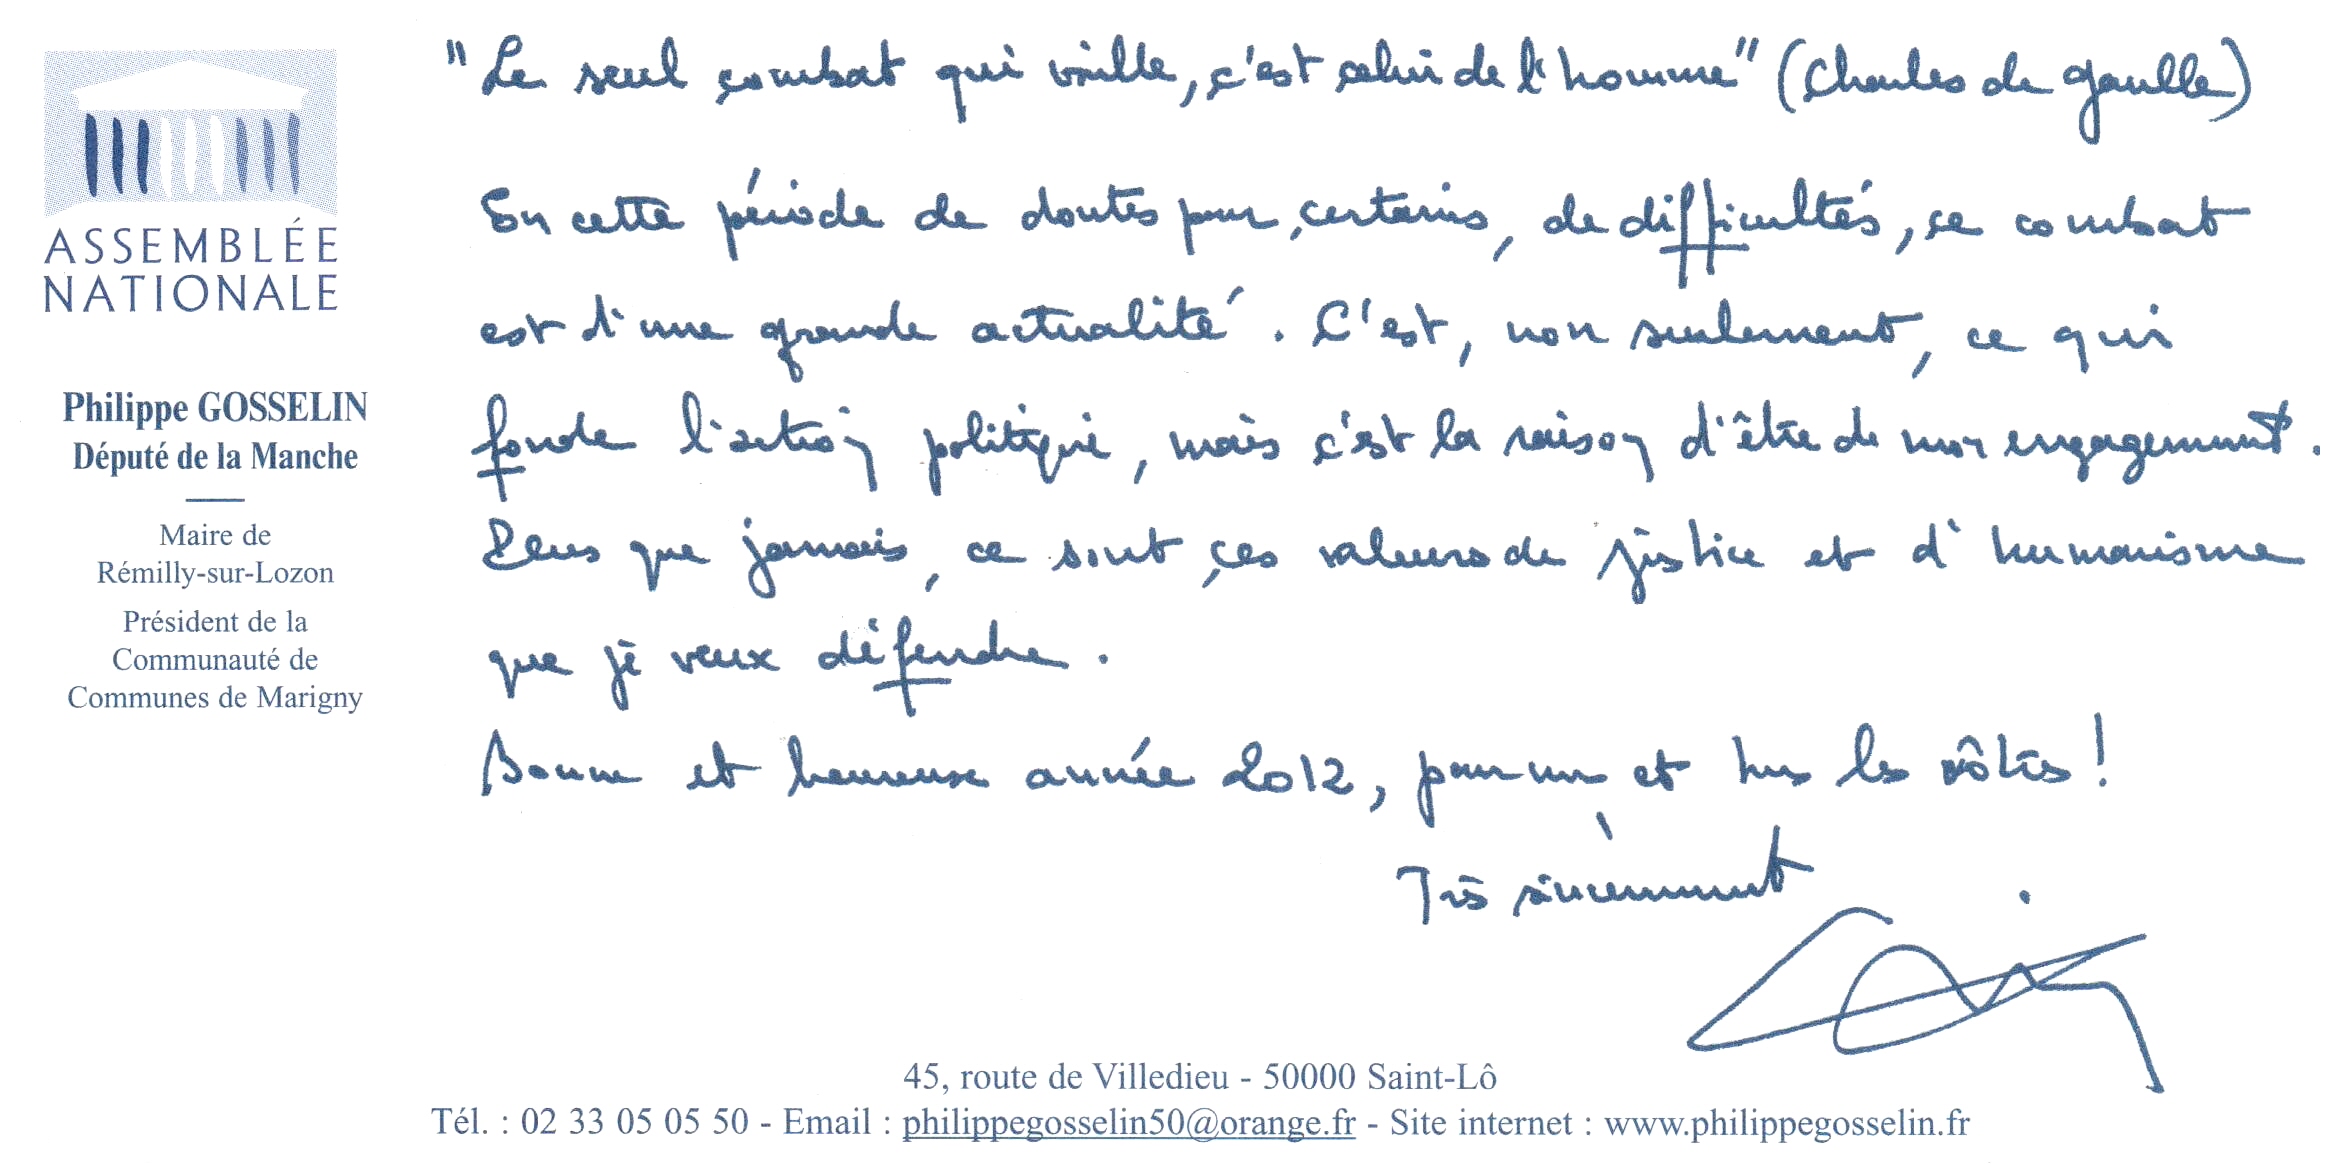 ASSEMBLÉE
NATIONALE
Philippe GOSSELIN
Député de la Manche
Maire de
Rémilly-sur-Lozon
Président de la
Communauté de
Communes de Marigny
"Le seul combat qui vaille, c'est celui de l'homme" (Charles de Gaulle)
En cette période de doutes pour certains, de difficultés, ce combat
est d'une grande actualité. C'est, non seulement, ce qui
fonde l'action politique, mais c'est la raison d'être de mon engagement.
Plus que jamais, ce sont ces valeurs de justice et d'humanisme
que je veux défendre.
Bonne et heureuse année 2012, pour vous et tous les vôtres !
Très sincèrement
45, route de Villedieu - 50000 Saint-Lô
Tél. : 02 33 05 05 50 - Email : philippegosselin50@orange.fr - Site internet : www.philippegosselin.fr